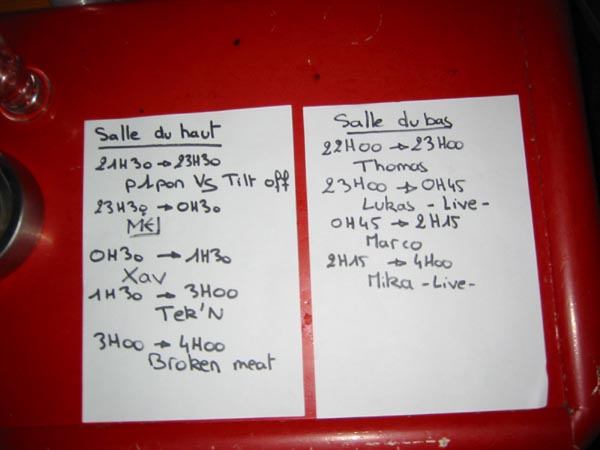 Salle du haut
21H30 → 23H30
p1pon VS Tilt off
23H30 → 0H30
M€L
0H30 → 1H30
Xav
1H30 → 3H00
Tek'N
3H00 → 4H00
Broken meat
Salle du bas
22H00 → 23H00
Thomas
23H00 → 0H45
Lukas - Live -
0H45 → 2H15
Marco
2H15 → 4H00
Mika - Live -